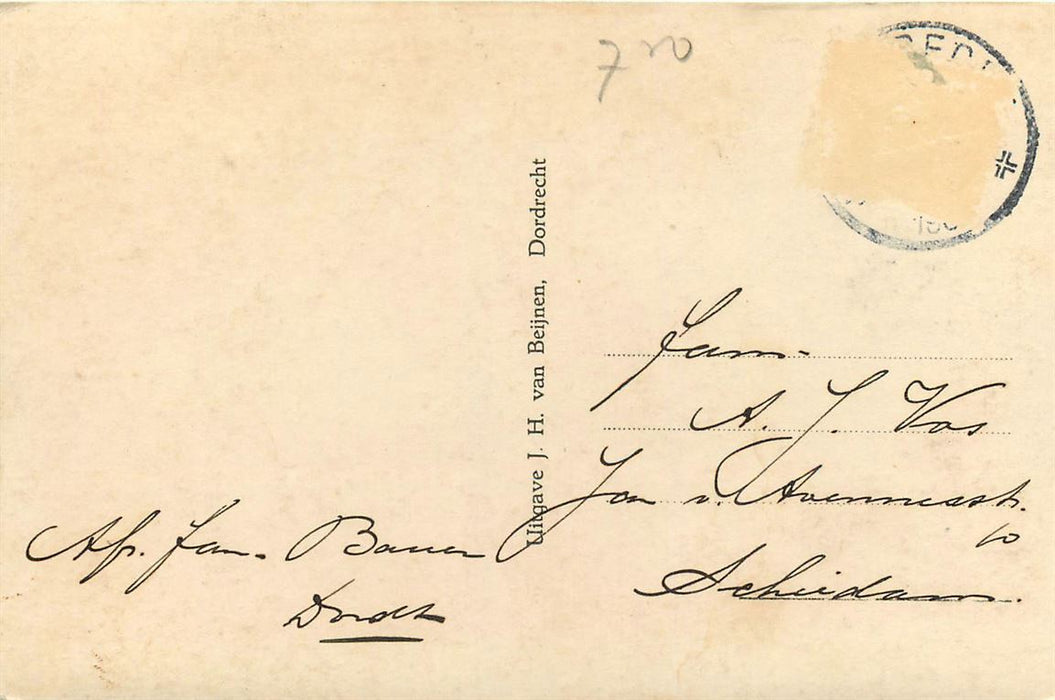 7 50
Uitgave J. H. van Beijnen, Dordrecht
Fam.
A. J. Vos
Jan v. Avennesstr.
10
Schiedam.
Afz. Fam. Bauer
Dordt